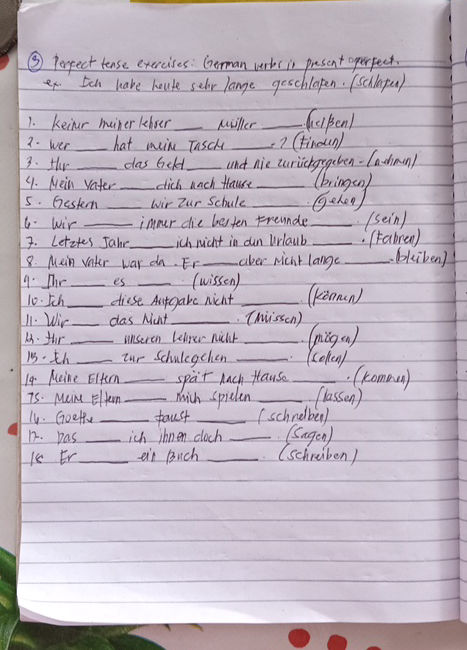 ③ Perfect tense exercises: German verbs in present perfect.
ex. Ich habe heute sehr lange geschlafen. (schlafen)
1. Keiner meiner lehrer ____ Müller ____. (heißen)
2. Wer ____ hat mein Tasche ____.? (finden)
3. Ihr ____ das Geld ____ und nie zurückgegeben - (nehmen)
4. Mein Vater ____ dich nach Hause ____ (bringen)
5. Gestern ____ wir zur Schule ____. (gehen)
6. Wir ____ immer die besten Freunde ____. (sein)
7. Letztes Jahr ____ ich nicht in den Urlaub ____. (fahren)
8. Mein Vater war da. Er ____ aber nicht lange ____. (bleiben)
9. Ihr ____ es ____. (wissen)
10. Ich ____ diese Aufgabe nicht ____. (können)
11. Wir ____ das Nicht ____. (müssen)
12. Ihr ____ unseren Lehrer nicht ____. (mögen)
13. Ich ____ zur Schule gehen ____. (sollen)
14. Meine Eltern ____ spät nach Hause ____. (kommen)
15. Meine Eltern ____ mich spielen ____. (lassen)
16. Goethe ____ Faust ____ (schreiben)
17. Das ____ ich ihnen doch ____. (sagen)
18. Er ____ ein Buch ____. (schreiben)